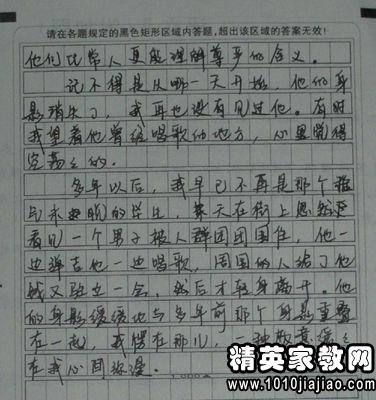 请在各题规定的黑色矩形区域内答题,超出该区域的答案无效!
他们比常人更能理解尊严的含义。
记不得是从哪一天开始,他们的身
影消失了,我再也没有见过他。有时
我望着他曾经唱歌的地方,心里觉得
空荡荡的。
多年以后,我早已不再是那个
的学生,某天在街上忽然
看见一个男子被人群团团围住,他一
边弹吉他一边唱歌,周围的人给了他
钱又驻立一会,然后才转身离开。他
的身影缓缓地与多年前那个身影重叠
在一起,我愣在那儿,一种敬意缓缓
在我心间弥漫。
精英家教网
www.1010jiajiao.com